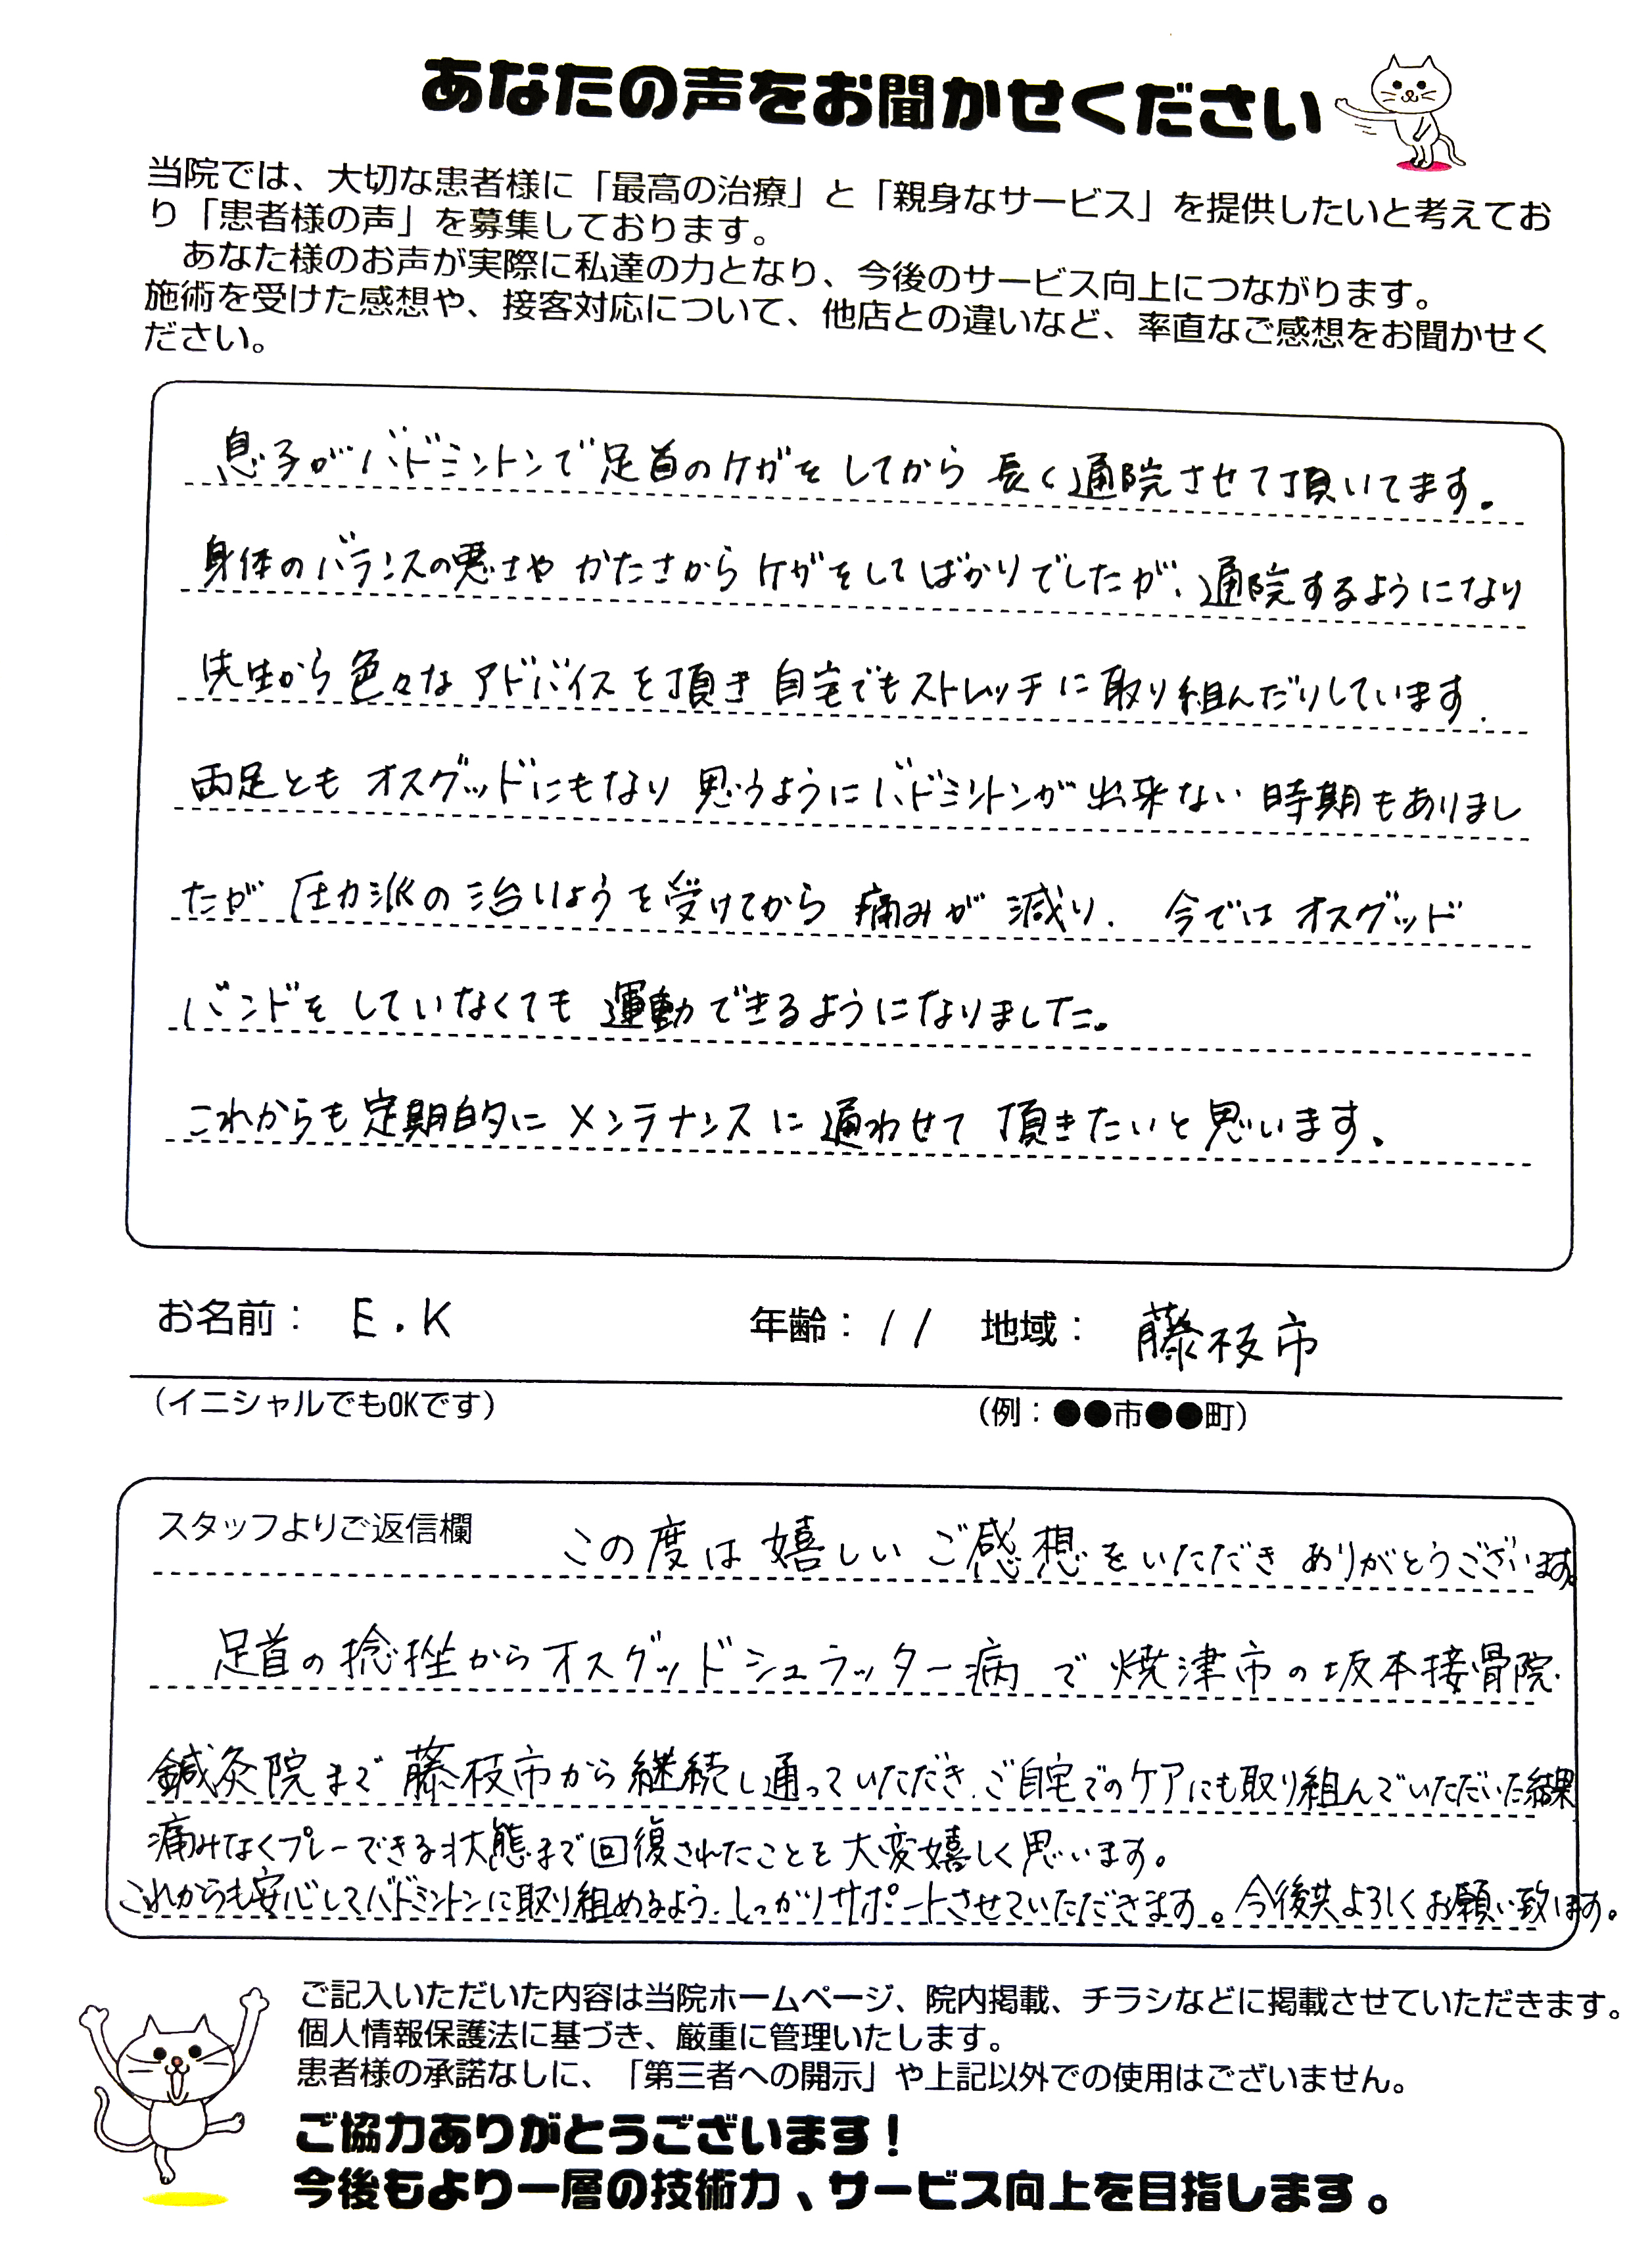 あなたの声をお聞かせください
当院では、大切な患者様に「最高の治療」と「親身なサービス」を提供したいと考えてお
り「患者様の声」を募集しております。
あなた様のお声が実際に私達の力となり、今後のサービス向上につながります。
施術を受けた感想や、接客対応について、他店との違いなど、率直なご感想をお聞かせく
ださい。
息子がバドミントンで足首のケガをしてから長く通院させて頂いてます。
身体のバランスの悪さやかたさからケガをしてばかりでしたが、通院するようになり
先生から色々なアドバイスを頂き自宅でもストレッチに取り組んだりしています.
両足ともオスグッドにもなり思うようにバドミントンが出来ない時期もありまし
たが圧力派の治りょうを受けてから痛みが減り. 今ではオスグッド
バンドをしていなくても運動できるようになりました。
これからも定期的にメンテナンスに通わせて頂きたいと思います。
お名前： E.K 年齢：11 地域： 藤枝市
（イニシャルでもOKです） （例：●●市●●町）
スタッフよりご返信欄 この度は嬉しいご感想をいただきありがとうございます。
足首の捻挫からオスグッドシュラッター病で焼津市の坂本接骨院・
鍼灸院まで藤枝市から継続し通っていただき、ご自宅でのケアにも取り組んでいただいた結果
痛みなくプレーできる状態まで回復されたことを大変嬉しく思います。
これからも安心してバドミントンに取り組めるよう、しっかりサポートさせていただきます。今後共よろしくお願い致します。
ご記入いただいた内容は当院ホームページ、院内掲載、チラシなどに掲載させていただきます。
個人情報保護法に基づき、厳重に管理いたします。
患者様の承諾なしに、「第三者への開示」や上記以外での使用はございません。
ご協力ありがとうございます！
今後もより一層の技術力、サービス向上を目指します。